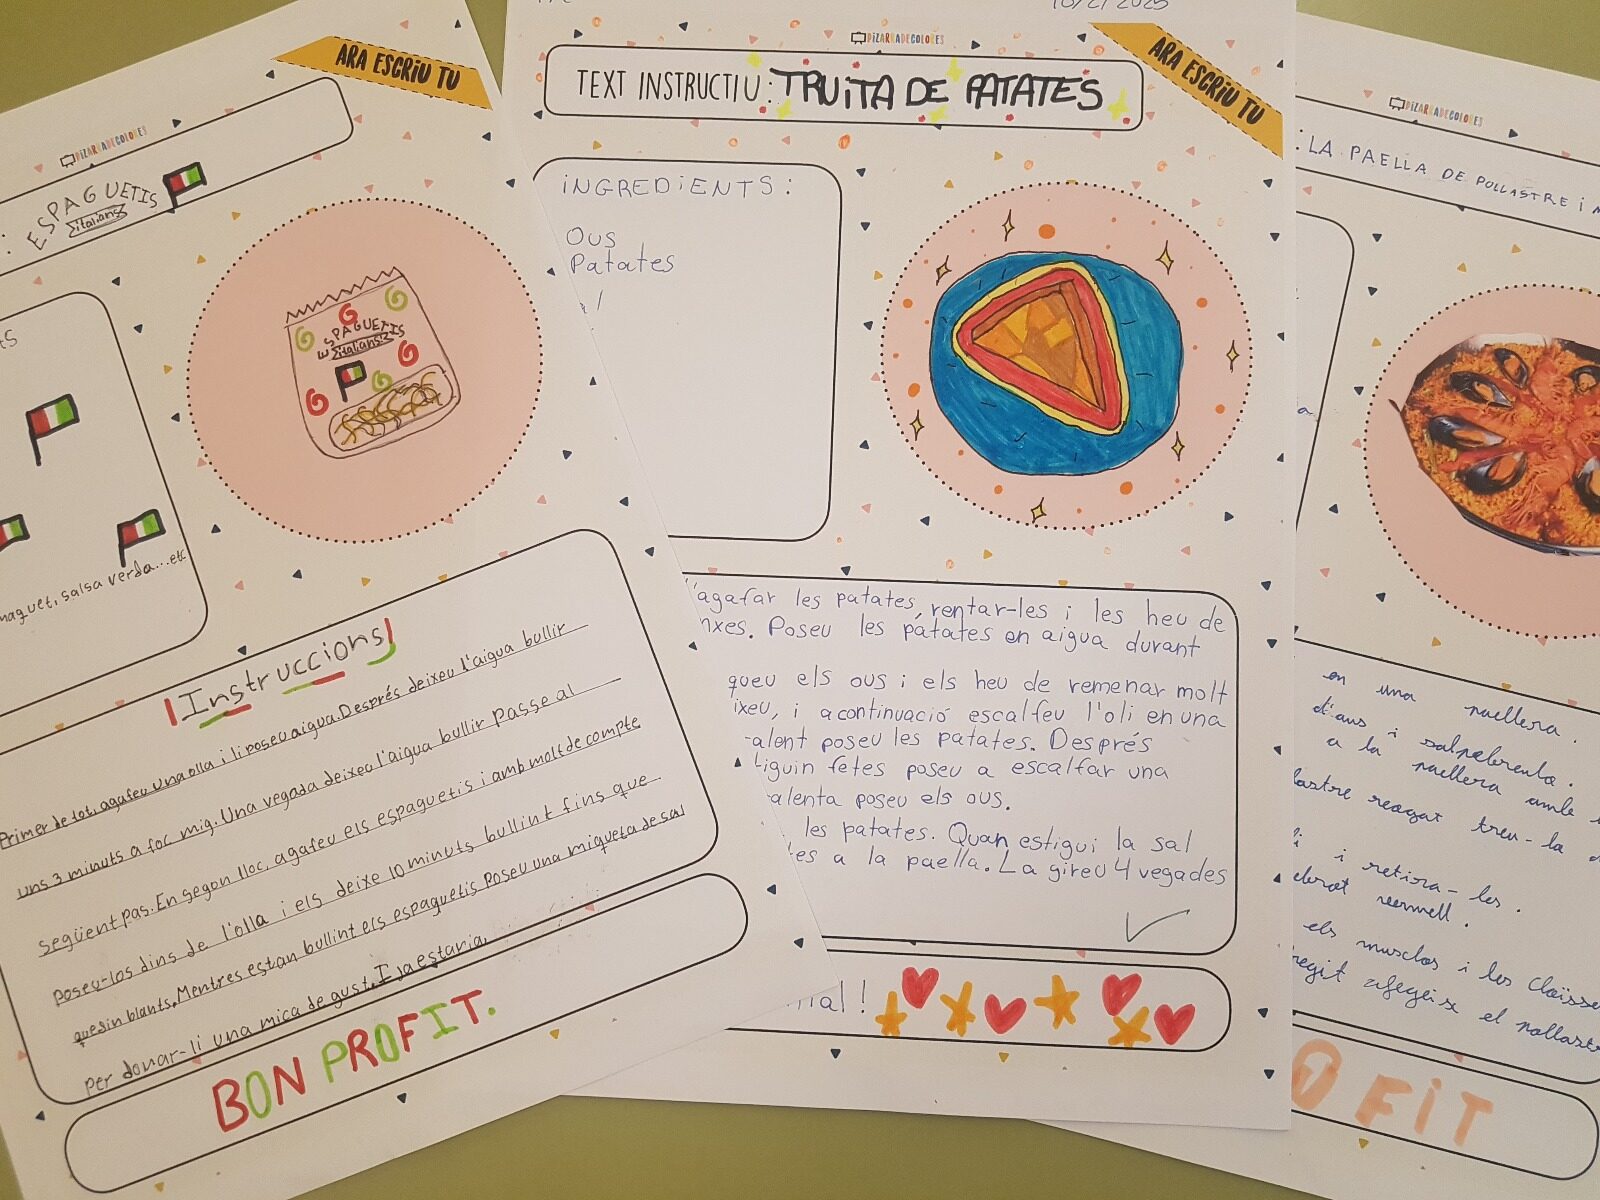 ARA ESCRIU TU
PIZARRADECOLORES
: ESPAGUETIS
italians
ESPAGUETIS
italians
salsa verda...etc
Instruccions
Primer de tot, agafeu una olla i li poseu aigua. Després deixeu l'aigua bullir
uns 3 minuts a foc mig. Una vegada deixeu l'aigua bullir passe al
següent pas. En segon lloc, agafeu els espaguetis i amb molt de compte
poseu-los dins de l'olla i els deixe 10 minuts bullint fins que
quedin blants. Mentres estan bullint els espaguetis poseu una miqueta de sal
per donar-li una mica de gust. I ja estaria.
BON PROFIT.
10/2/2025
PIZARRADECOLORES
ARA ESCRIU TU
TEXT INSTRUCTIU: TRUITA DE PATATES
INGREDIENTS:
Ous
Patates
agafar les patates, rentar-les i les heu de
nxes. Poseu les patates en aigua durant
queu els ous i els heu de remenar molt
ixeu, i acontinuació escalfeu l'oli en una
alent poseu les patates. Després
tiguin fetes poseu a escalfar una
alenta poseu els ous.
les patates. Quan estigui la sal
tes a la paella. La gireu 4 vegades
nal!
PIZARRADECOLORES
: LA PAELLA DE POLLASTRE I
en una paellera.
d'aus i salpebrenta.
a la paellera amb
lastre reagat treu-la
i retira-les.
vermell.
els musclos i les cloïsse
regit afegeix el pollast
O FIT